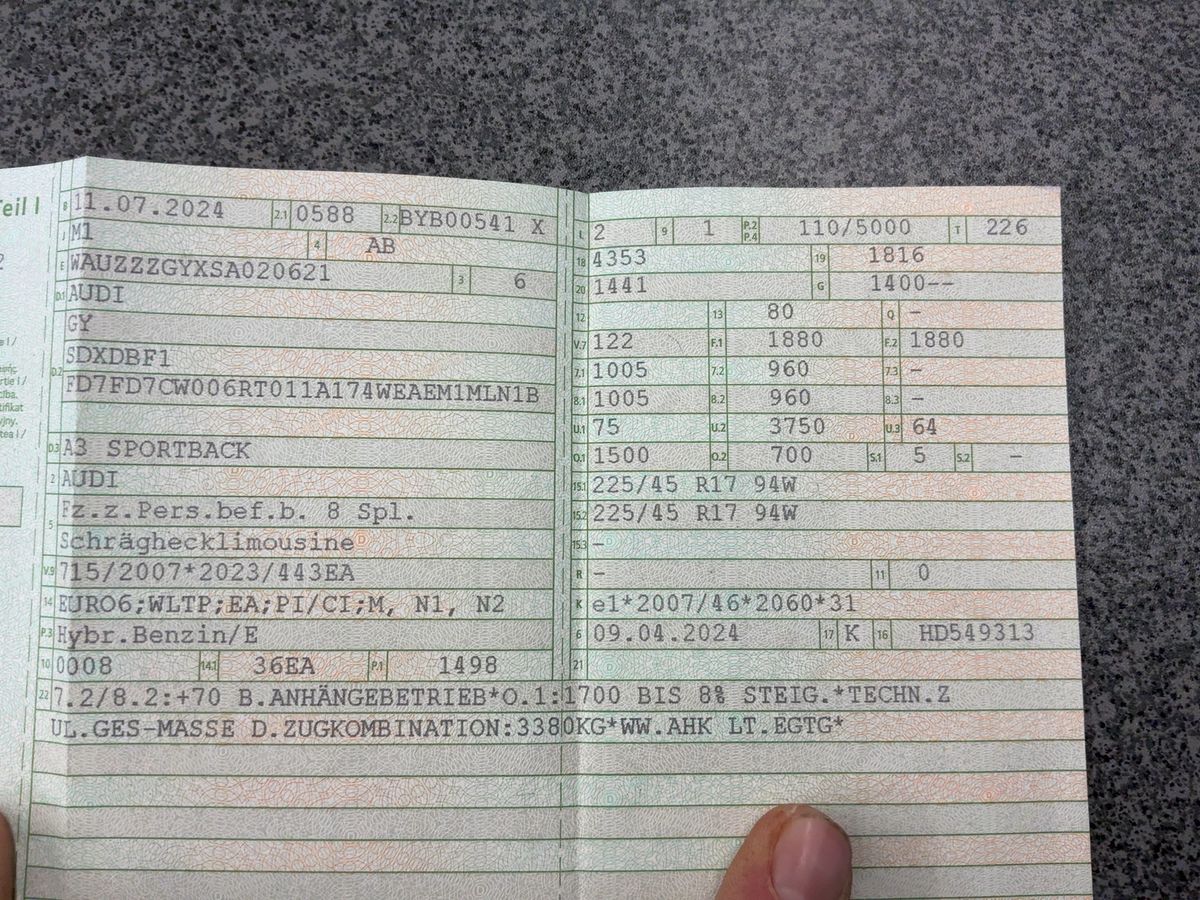 Teil I
B 11.07.2024 2.1 0588 2.2 BYB00541 X
J M1 4 AB
E WAUZZZGYXSA020621 3 6
D.1 AUDI
GY
D.2 SDXDBF1
FD7FD7CW006RT011A174WEAEM1MLN1B
D.3 A3 SPORTBACK
2 AUDI
5 Fz.z.Pers.bef.b. 8 Spl.
Schräghecklimousine
V.9 715/2007*2023/443EA
14 EURO6;WLTP;EA;PI/CI;M, N1, N2
P.3 Hybr.Benzin/E
10 0008 14.1 36EA P.1 1498
L 2 9 1 P.2 P.4 110/5000 T 226
18 4353 19 1816
20 1441 G 1400--
12 13 80 Q -
V.7 122 F.1 1880 F.2 1880
7.1 1005 7.2 960 7.3 -
8.1 1005 8.2 960 8.3 -
U.1 75 U.2 3750 U.3 64
O.1 1500 O.2 700 S.1 5 S.2 -
15.1 225/45 R17 94W
15.2 225/45 R17 94W
15.3 -
R - 11 0
K e1*2007/46*2060*31
6 09.04.2024 17 K 16 HD549313
21
22 7.2/8.2:+70 B.ANHÄNGEBETRIEB*O.1:1700 BIS 8% STEIG.*TECHN.Z
UL.GES-MASSE D.ZUGKOMBINATION:3380KG*WW.AHK LT.EGTG*